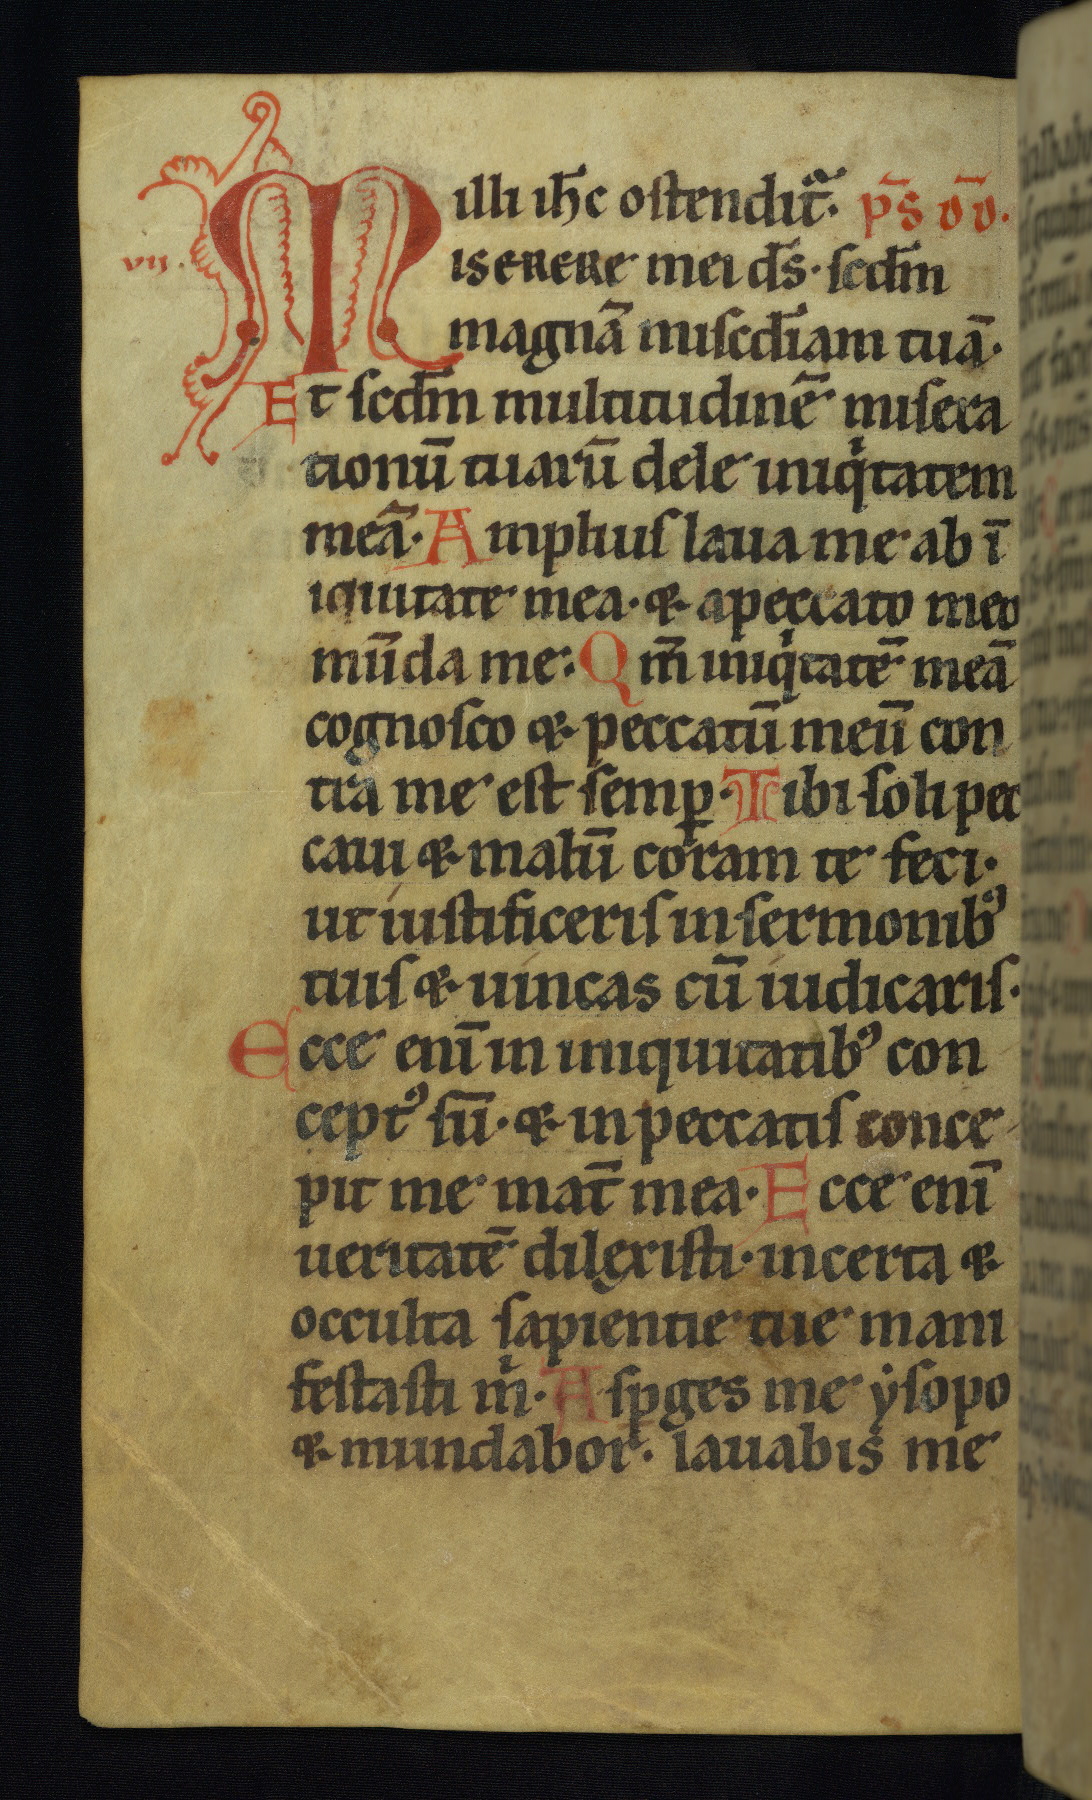 illi ih̄c ostendit᷑. ps̄ dd̄.
vii.
Miserere mei ds̄. scd̄m
magnā misc̄diam tuā.
Et scd̄m multitudinē misera
tionū tuarū dele iniqͥtatem
meā. Amplius laua me ab ī
iquitate mea. & apeccato meo
mūda me. Qm̄ iniqͥtatē meā
cognosco & peccatū meū con
tra me est semꝑ. Tibi soli pec
caui & malū coram te feci.
ut iustificeris in sermonibꝰ
tuis & uincas cū iudicaris.
Ecce enī in iniquitatibꝰ con
ceptꝰ sū. & in peccatis conce
pit me mat̄ mea. Ecce enī
ueritatē dilexisti. incerta &
occulta sapientie tue mani
festasti mͥ. Asꝑges me ẏsopo
& mundabor. lauabis me